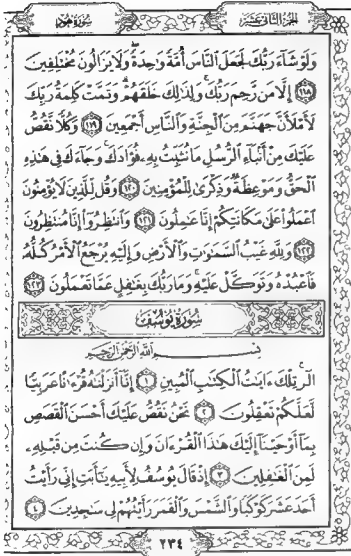 الجزء الثاني عشر
سورة هود
وَلَوْ شَآءَ رَبُّكَ لَجَعَلَ ٱلنَّاسَ أُمَّةً وَٰحِدَةً ۖ وَلَا يَزَالُونَ مُخْتَلِفِينَ
١١٨ إِلَّا مَن رَّحِمَ رَبُّكَ ۚ وَلِذَٰلِكَ خَلَقَهُمْ ۗ وَتَمَّتْ كَلِمَةُ رَبِّكَ
لَأَمْلَأَنَّ جَهَنَّمَ مِنَ ٱلْجِنَّةِ وَٱلنَّاسِ أَجْمَعِينَ ١١٩ وَكُلًّا نَّقُصُّ
عَلَيْكَ مِنْ أَنۢبَآءِ ٱلرُّسُلِ مَا نُثَبِّتُ بِهِۦ فُؤَادَكَ ۚ وَجَآءَكَ فِى هَٰذِهِ
ٱلْحَقُّ وَمَوْعِظَةٌ وَذِكْرَىٰ لِلْمُؤْمِنِينَ ١٢٠ وَقُل لِّلَّذِينَ لَا يُؤْمِنُونَ
ٱعْمَلُوا۟ عَلَىٰ مَكَانَتِكُمْ إِنَّا عَٰمِلُونَ ١٢١ وَٱنتَظِرُوٓا۟ إِنَّا مُنتَظِرُونَ
١٢٢ وَلِلَّهِ غَيْبُ ٱلسَّمَٰوَٰتِ وَٱلْأَرْضِ وَإِلَيْهِ يُرْجَعُ ٱلْأَمْرُ كُلُّهُۥ
فَٱعْبُدْهُ وَتَوَكَّلْ عَلَيْهِ ۚ وَمَا رَبُّكَ بِغَٰفِلٍ عَمَّا تَعْمَلُونَ ١٢٣
سُورَةُ يُوسُفَ
بِسْمِ ٱللَّهِ ٱلرَّحْمَٰنِ ٱلرَّحِيمِ
الٓر ۚ تِلْكَ ءَايَٰتُ ٱلْكِتَٰبِ ٱلْمُبِينِ ١ إِنَّآ أَنزَلْنَٰهُ قُرْءَٰنًا عَرَبِيًّا
لَّعَلَّكُمْ تَعْقِلُونَ ٢ نَحْنُ نَقُصُّ عَلَيْكَ أَحْسَنَ ٱلْقَصَصِ
بِمَآ أَوْحَيْنَآ إِلَيْكَ هَٰذَا ٱلْقُرْءَانَ وَإِن كُنتَ مِن قَبْلِهِۦ
لَمِنَ ٱلْغَٰفِلِينَ ٣ إِذْ قَالَ يُوسُفُ لِأَبِيهِ يَٰٓأَبَتِ إِنِّى رَأَيْتُ
أَحَدَ عَشَرَ كَوْكَبًا وَٱلشَّمْسَ وَٱلْقَمَرَ رَأَيْتُهُمْ لِى سَٰجِدِينَ ٤
٢٣٤